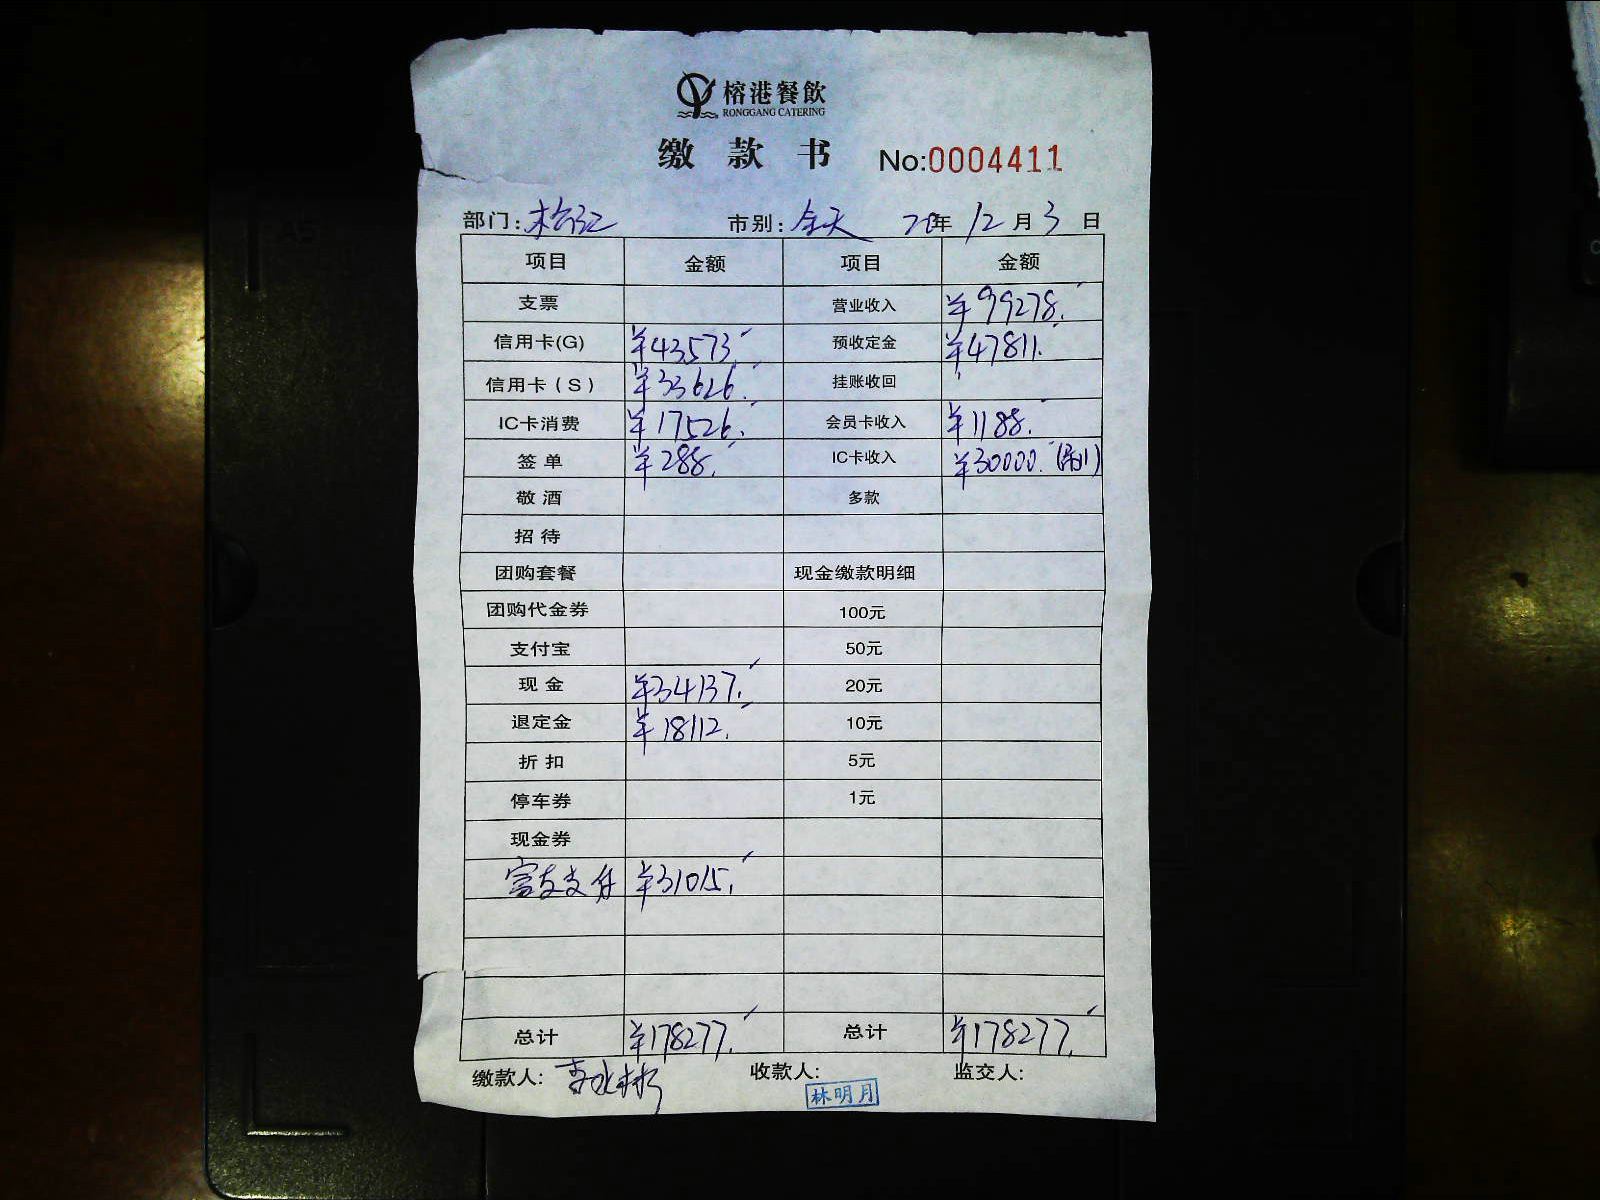 榕港餐飲
RONGGANG CATERING
缴款书 No:0004411
部门: 市别:全天 20年12月3日
项目 金额 项目 金额
支票 营业收入 ¥99278.
信用卡(G) ¥43573. 预收定金 ¥47811.
信用卡(S) ¥33626. 挂账收回
IC卡消费 ¥17526. 会员卡收入 ¥1188.
签单 ¥288. IC卡收入 ¥30000.
敬酒 多款
招待
团购套餐 现金缴款明细
团购代金券 100元
支付宝 50元
现金 ¥34137. 20元
退定金 ¥18112. 10元
折扣 5元
停车券 1元
现金券
富友支付 ¥31015.
总计 ¥178277. 总计 ¥178277.
缴款人: 收款人: 监交人:
林明月